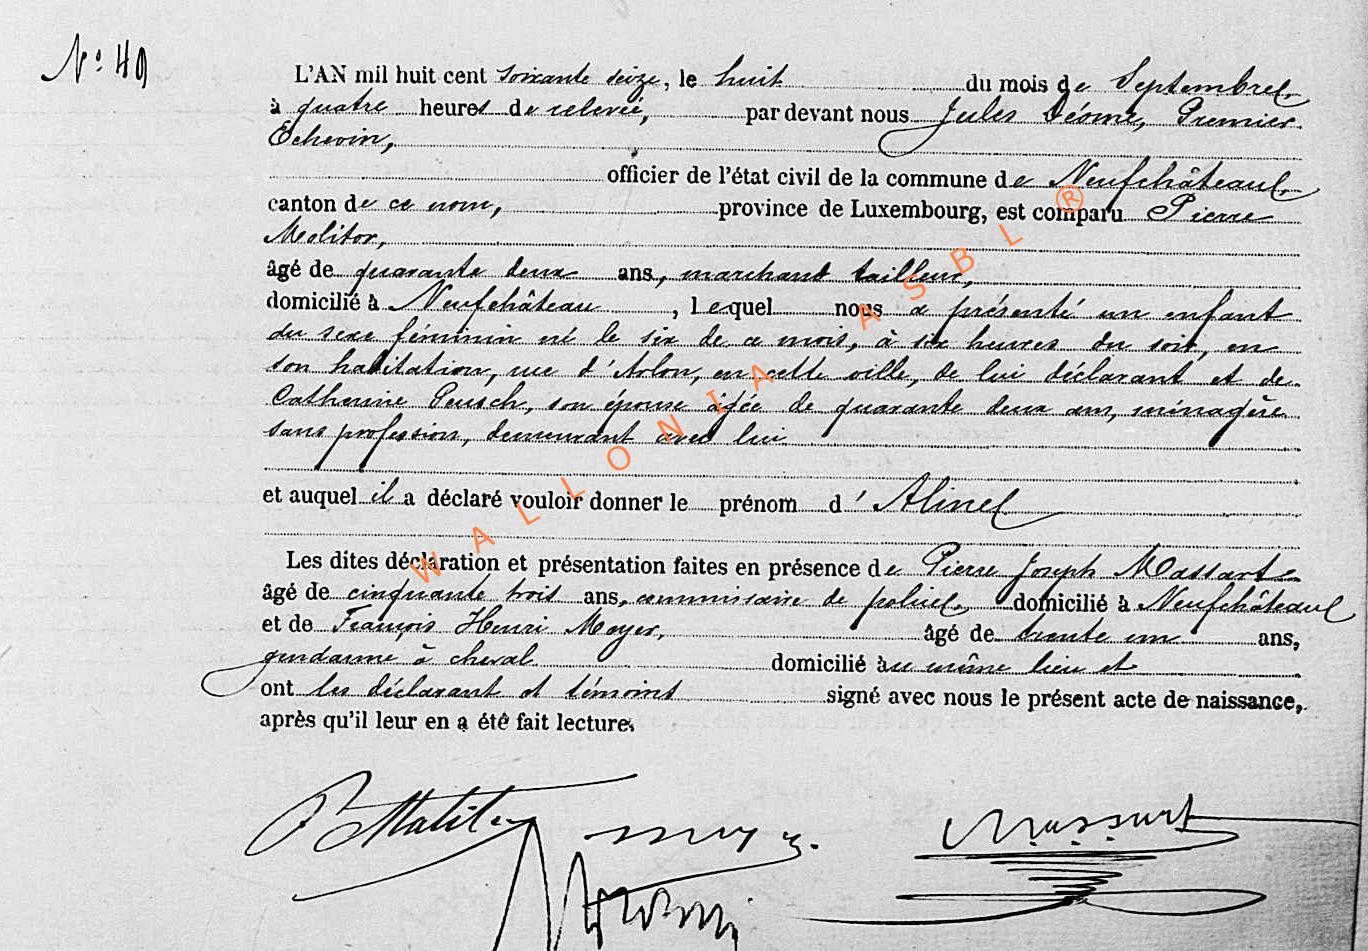 N° 49
L'AN mil huit cent soixante seize, le huit du mois de Septembre
à quatre heures de relevée, par devant nous Jules Déome, Premier
Echevin,
officier de l'état civil de la commune de Neufchâteau,
canton de ce nom, province de Luxembourg, est comparu Pierre
Molitor,
âgé de quarante deux ans, marchand tailleur,
domicilié à Neufchâteau, lequel nous a présenté un enfant
du sexe féminin né le six de ce mois, à six heures du soir, en
son habitation, rue d'Arlon, en cette ville, de lui déclarant et de
Catherine Peusch, son épouse âgée de quarante deux ans, ménagère
sans profession, demeurant avec lui
et auquel il a déclaré vouloir donner le prénom d'Aline
Les dites déclaration et présentation faites en présence de Pierre Joseph Massart
âgé de cinquante trois ans, commissaire de police, domicilié à Neufchâteau
et de François Henri Meyer, âgé de trente un ans,
gendarme à cheval domicilié au même lieu et
ont les déclarant et témoins signé avec nous le présent acte de naissance,
après qu'il leur en a été fait lecture.
P Molitor Meyer. Massart
WALLONIA ASBL ®